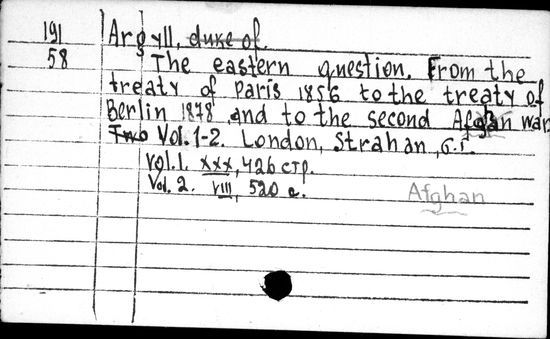 191 Argyll, duke of.
58 The eastern question. From the
treaty of Paris 1856 to the treaty of
Berlin 1878 and to the second Afgan war
Two Vol. 1-2. London, Strahan, б.г.
Vol. 1. xxx, 426 стр.
Vol. 2. VIII, 520 с.
Afghan